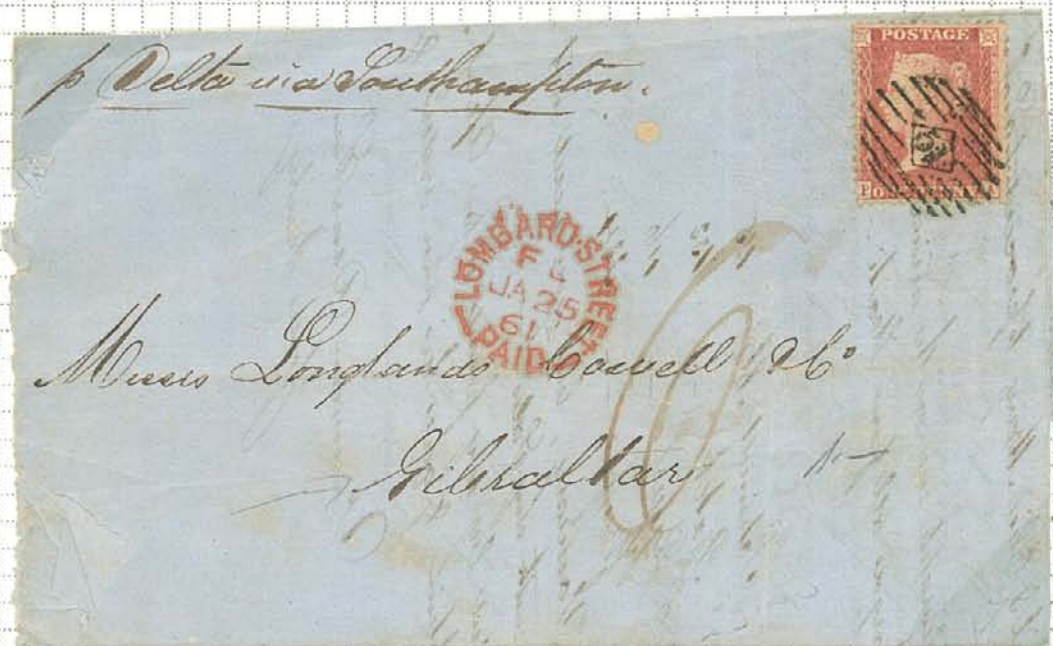 p Delta via Southampton.
POSTAGE
LOMBARD·STREET
F L
JA 25
61
PAID
6
Messrs Longlands Cowell & Co
Gibraltar